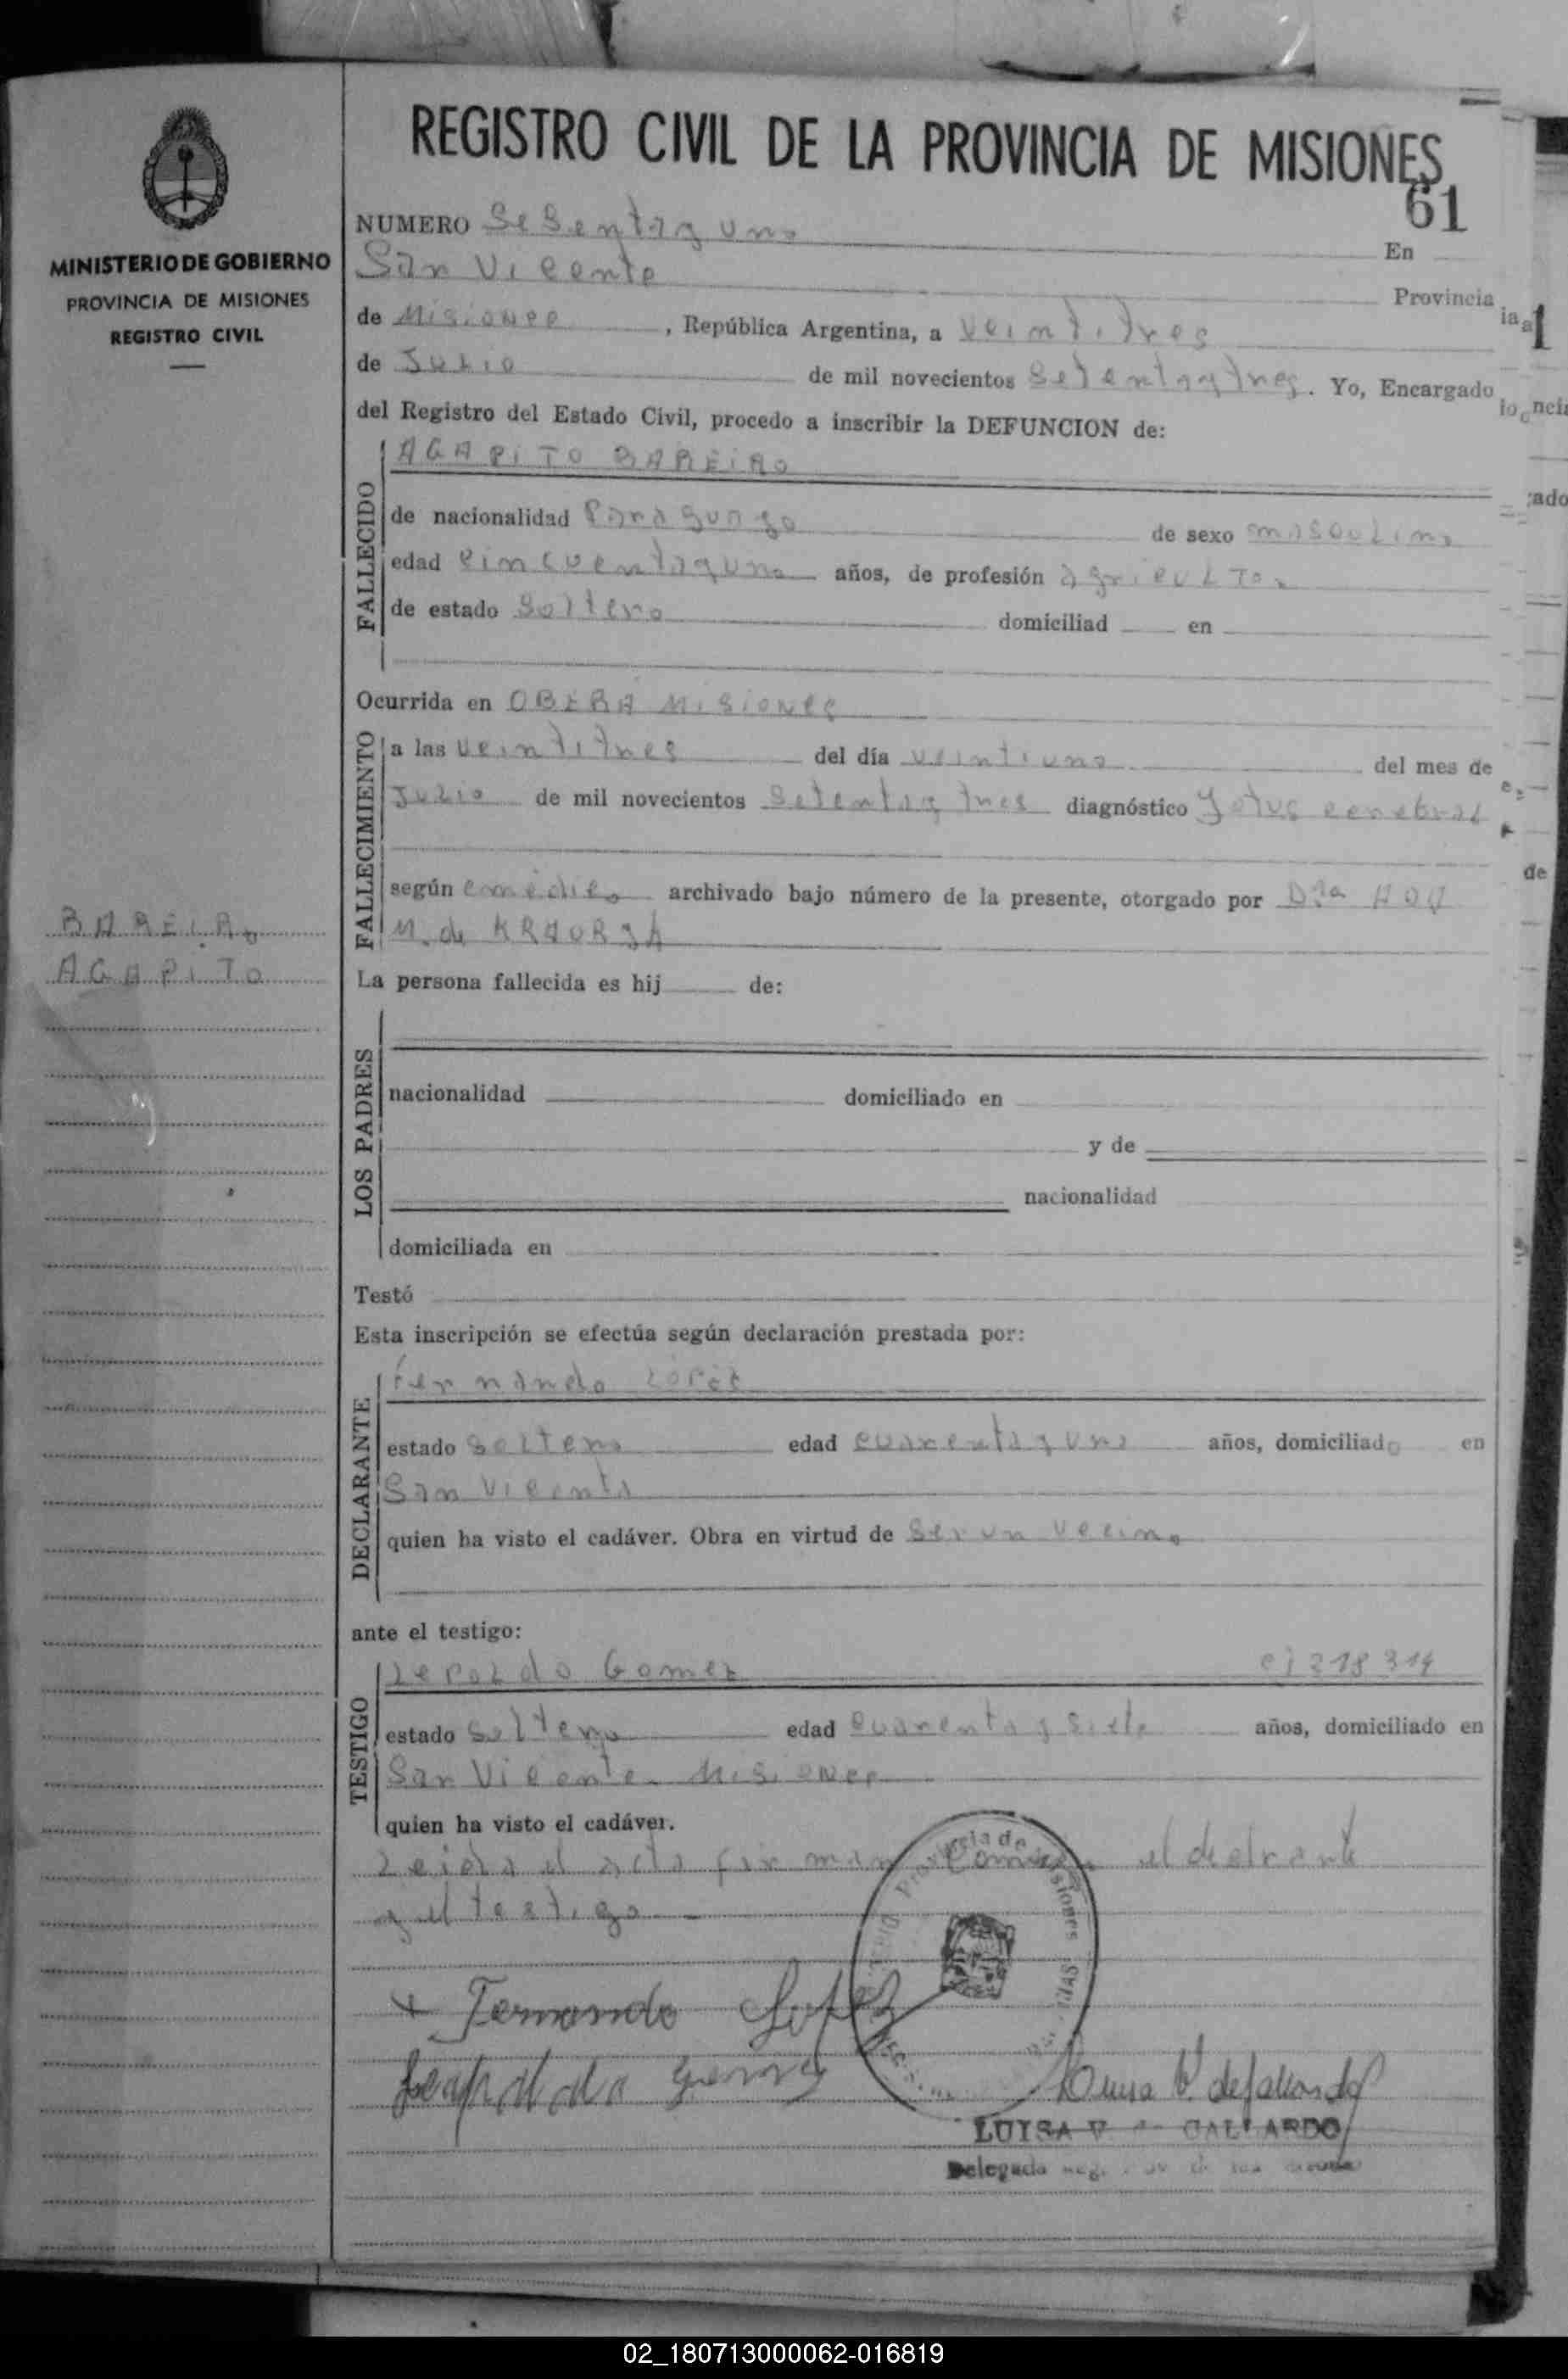 REGISTRO CIVIL DE LA PROVINCIA DE MISIONES
61
MINISTERIO DE GOBIERNO
PROVINCIA DE MISIONES
REGISTRO CIVIL
BAREIRO
AGAPITO
NUMERO Sesentayuno En
San Vicente Provincia
de Misiones, República Argentina, a veintitres
de Julio de mil novecientos setentaytres. Yo, Encargado
del Registro del Estado Civil, procedo a inscribir la DEFUNCION de:
FALLECIDO
AGAPITO BAREIRO
de nacionalidad Paraguayo de sexo masculino
edad cincuentayuno años, de profesión agricultor
de estado soltero domiciliad en
Ocurrida en OBERA Misiones
FALLECIMIENTO
a las veintitres del día veintiuno del mes de
Julio de mil novecientos setentaytres diagnóstico cerebral
según archivado bajo número de la presente, otorgado por Dra
M. de
La persona fallecida es hij de:
LOS PADRES
nacionalidad domiciliado en
y de
nacionalidad
domiciliada en
Testó
Esta inscripción se efectúa según declaración prestada por:
DECLARANTE
Fernando Lopez
estado soltero edad cuarentayuno años, domiciliado en
San Vicente
quien ha visto el cadáver. Obra en virtud de ser un vecino
ante el testigo:
TESTIGO
Gomez 218 314
estado soltero edad cuarenta y siete años, domiciliado en
San Vicente Misiones
quien ha visto el cadáver.
Leida el acta firman el
y el testigo
Fernando Lopez
LUISA V GALLARDO
Delegada
02_180713000062-016819